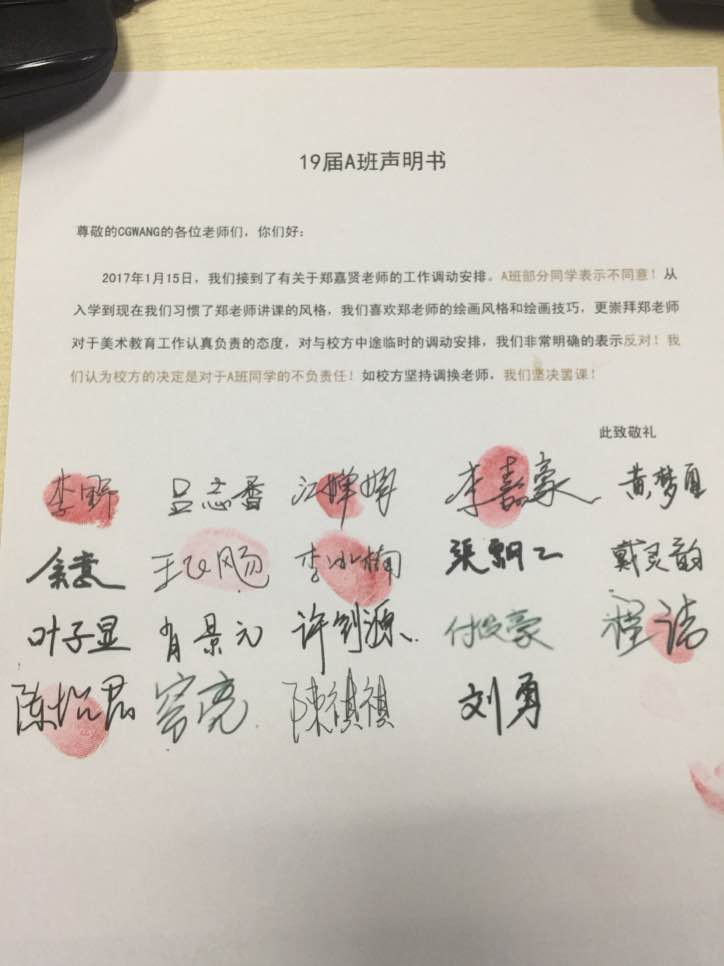 19届A班声明书
尊敬的CGWANG的各位老师们，你们好：
2017年1月15日，我们接到了有关于郑嘉贤老师的工作调动安排。A班部分同学表示不同意！从
入学到现在我们习惯了郑老师讲课的风格，我们喜欢郑老师的绘画风格和绘画技巧，更崇拜郑老师
对于美术教育工作认真负责的态度，对与校方中途临时的调动安排，我们非常明确的表示反对！我
们认为校方的决定是对于A班同学的不负责任！如校方坚持调换老师，我们坚决罢课！
此致敬礼
李野 吕志香 江婵娟 李嘉豪 黄梦夏
李冰楠 戴灵韵
叶子显 肖景元 许剑源 付俊豪 程诗
陈 陳祺祺 刘勇